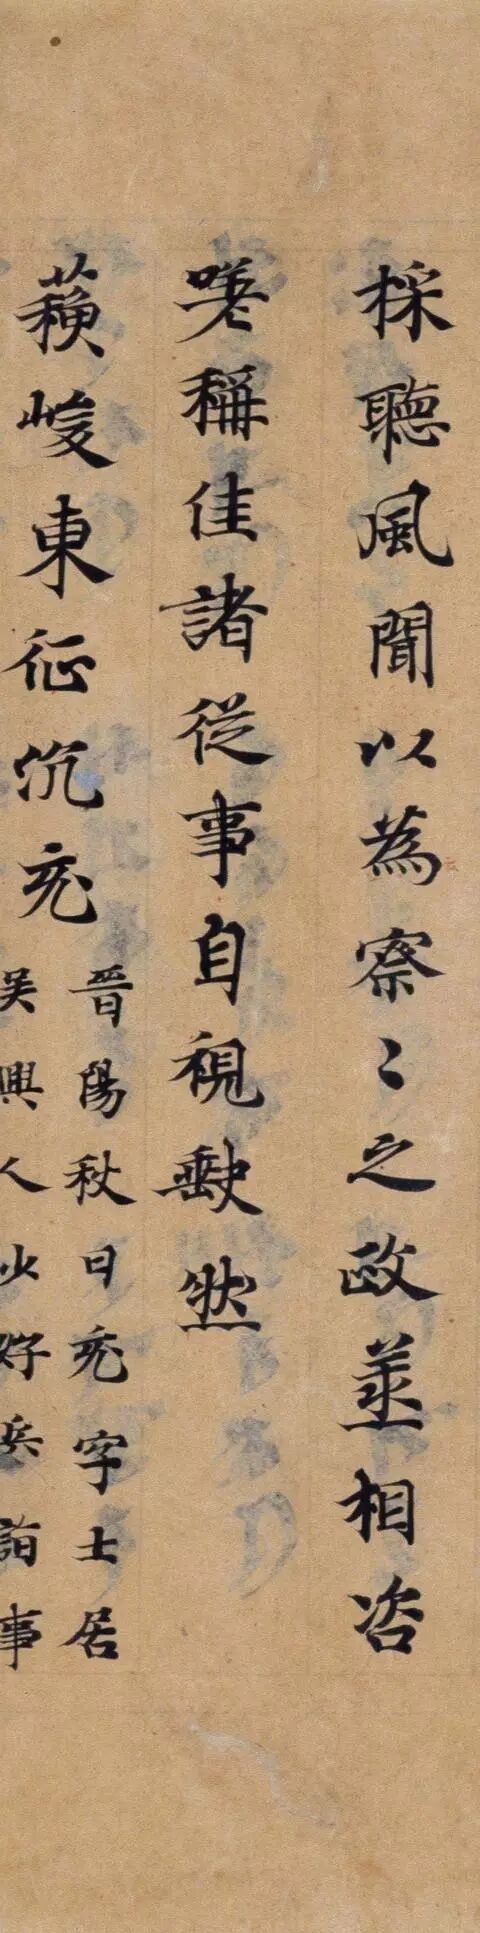 採聽風聞以為察〻之政丞相咨
嗟稱佳諸從事自視缺然
蘇峻東征沉充
晉陽秋曰充字士居
吳興人少好兵諂事